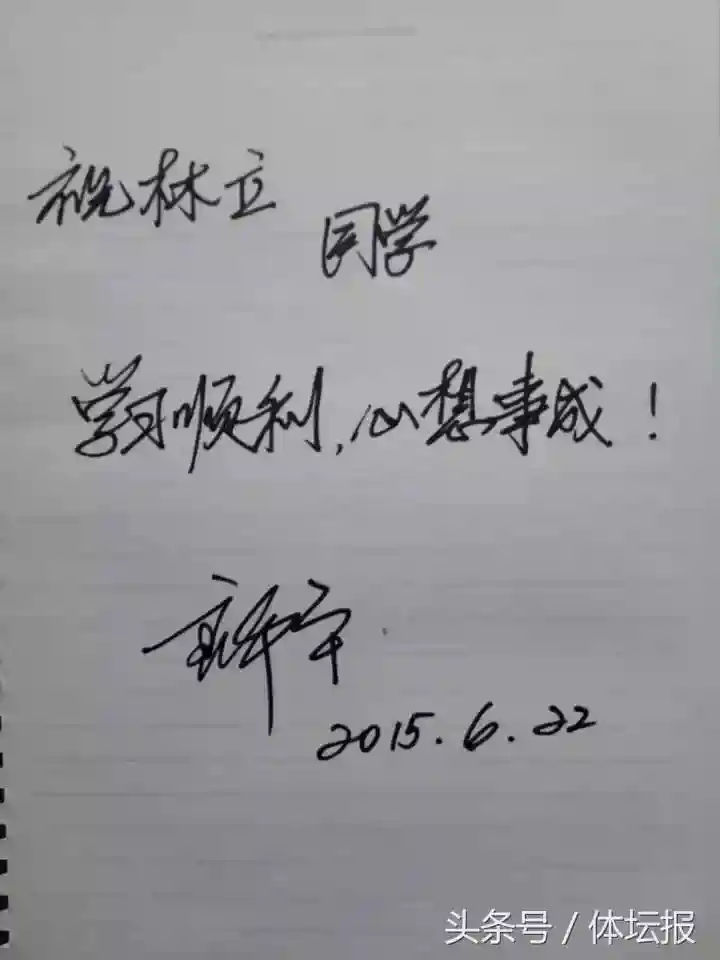 祝林立
同学
学习顺利,心想事成!
2015.6.22
头条号 / 体坛报